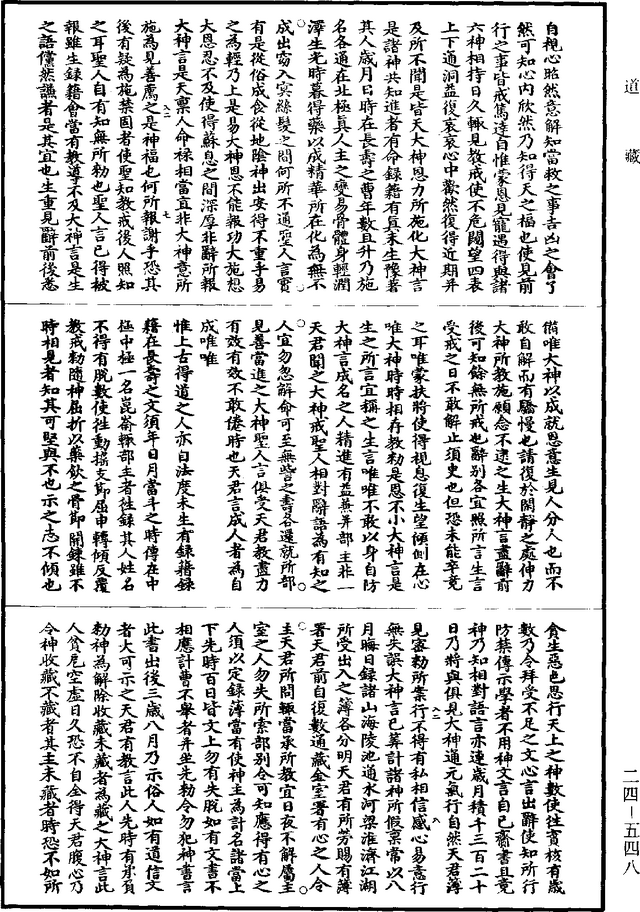 道藏
自視心昭然意解知當救之事吉凶之會了
然可知心內欣然乃知得天之福也使見前
行之事皆戒篤達自惟蒙恩見寵遇得與諸
六神相持日久輒見教戒使不危闕望四表
上下通洞益復哀哀心中歡然復得近期并
及所不聞是皆天大神恩力所施化大神言
是諸神共知進者有命錄籍有真未生豫著
其人歲月日時在長壽之曹年數且升乃施
名各通在北極真人主之變易骨體身輕潤
澤生光時暮得藥以成精華所在化為無不
成出窈入冥絲髮之間何所不通聖人言實
有是從俗成食從地陰神出安得不重乎易
之為輕乃上是易大神恩不能報功大施想
大恩忍不及使得蘇息之間深厚非辭所報
大神言是天稟人命祿相當直非大神意所
施為見善薦之是神福也何所報謝乎恐其
後有疑為施禁固者使聖知教戒後人照知
之耳聖人自有知無所勑也聖人言已得被
報雖生錄籍會當有教導不及大神言是生
之語儻然讌者是其宜也生重見辭前後悉
備唯大神以成就恩意生見人分人也而不
敢自解而有驕慢也請復於閑靜之處伸力
大神所教施願念不逮之生大神言盡辭前
後可知餘無所戒也辭別各宜照所言生言
受戒之日不敢解止須臾也但恐未能卒竟
之耳唯蒙扶將使得視息復生望傾側在心
唯大神時時相存教勑是恩不小大神言是
生之所言宜稱之生言唯唯不敢以身自防
大神言成名之人精進有益兼并部主非一
天君聞之大神戒聖人相對辭語為有知之
人宜勿忽解命可至無訾之壽各還就所部
見善當進之大神聖人言俱受天君教盡力
有效有效不敢倦時也天君言成人者為自
成唯唯
惟上古得道之人亦自法度未生有錄籍錄
籍在長壽之文須年日月當升之時傳在中
極中極一名崑崙輒部主者往錄其人姓名
不得有脫數使往動搖支節屈申轉傾反覆
教戒勑隨神屈折以藥飲之骨節開鍊雖不
時相見者知其可堅與不也示之志不傾也
貪生惡色思行天上之神數使往實核有歲
數乃令拜受不足之文心言出辭使知所行
防禁傳示學者不用神文言自已齋書且竟
神乃知相對語言亦連歲月積千三百二十
日乃將與俱見大神通元氣行自然天君薄
見密勑所案行不得有私相信感心易意行
無失誤大神言已算計諸神所假稟常以八
月晦日錄諸山海陵池通水河梁淮濟江湖
所受出入之簿各分明天君有所勞賜有簿
署天君前自復數通藏金室署有心之人令
主天君所問輒當承所教宜日夜不解屬主
室之人勿失所索部別令可知應得有心之
人須以定錄簿當有使神主為計名諸當上
下先時百日皆文上勿有失脫如有文書不
相應計曹不舉者并坐先勑令勿犯神書言
此書出後三歲八月乃示俗人如有道信文
者大可示之天君有教言此人先時有承負
勑神為解除收藏未藏者為藏之大神言此
人貧尼空虛日久恐不自全得天君腹心乃
令神收藏不藏者其主未藏者時恐不如所
二四-五四八